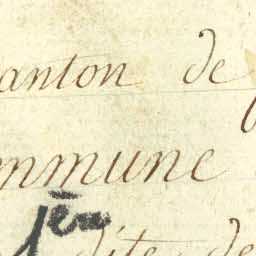 anton de
mmune
1er
dite de